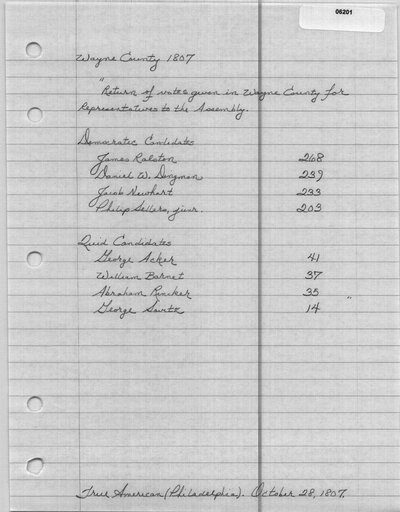 06201
Wayne County 1807
"Return of votes given in Wayne County for
Representatives to the Assembly.
Democratic Candidates
James Ralston 268
Daniel W. Dingman 239
Jacob Newhart 233
Philip Sellers, junr. 203
Quid Candidates
George Acker 41
William Barnet 37
Abraham Rinker 35 "
George 14
True American (Philadelphia). October 28, 1807.